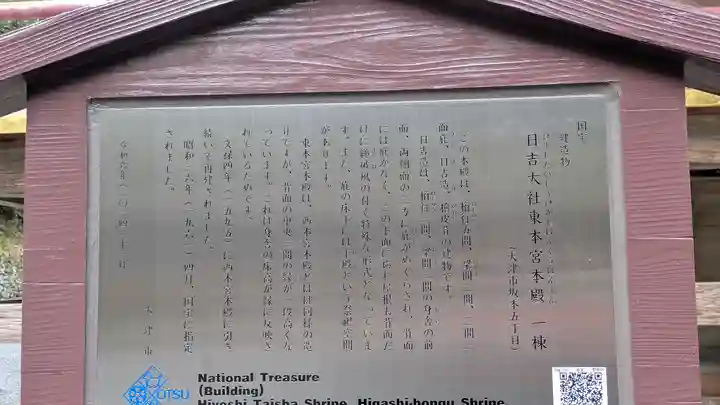 国宝
建造物
日吉大社東本宮本殿 一棟
(大津市坂本五丁目)
この本殿は、桁行五間、梁間三間、三間三
面庇、日吉造、桧皮葺の建物です。
日吉造は、桁行三間、梁間二間の身舎の前
面、両側面の三方に庇がめぐらされ、背面
には庇がなく、この正面に
す。また、庇の床下には下殿という祭祀空間
があります。
東本宮本殿は、西本宮本殿とほぼ同様の造
りですが、背面の中央三間の縁が一段高くな
っています。これは身舎の床高が縁に反映さ
れているためです。
文禄四年(一五九五)に西本宮本殿に引き
続いて再建されました。
昭和三六年(一九六一)四月、国宝に指定
されました。
大津市
OTSU
National Treasure
(Building)
Hiyoshi Taisha Shrine, Higashi-hongu Shrine,